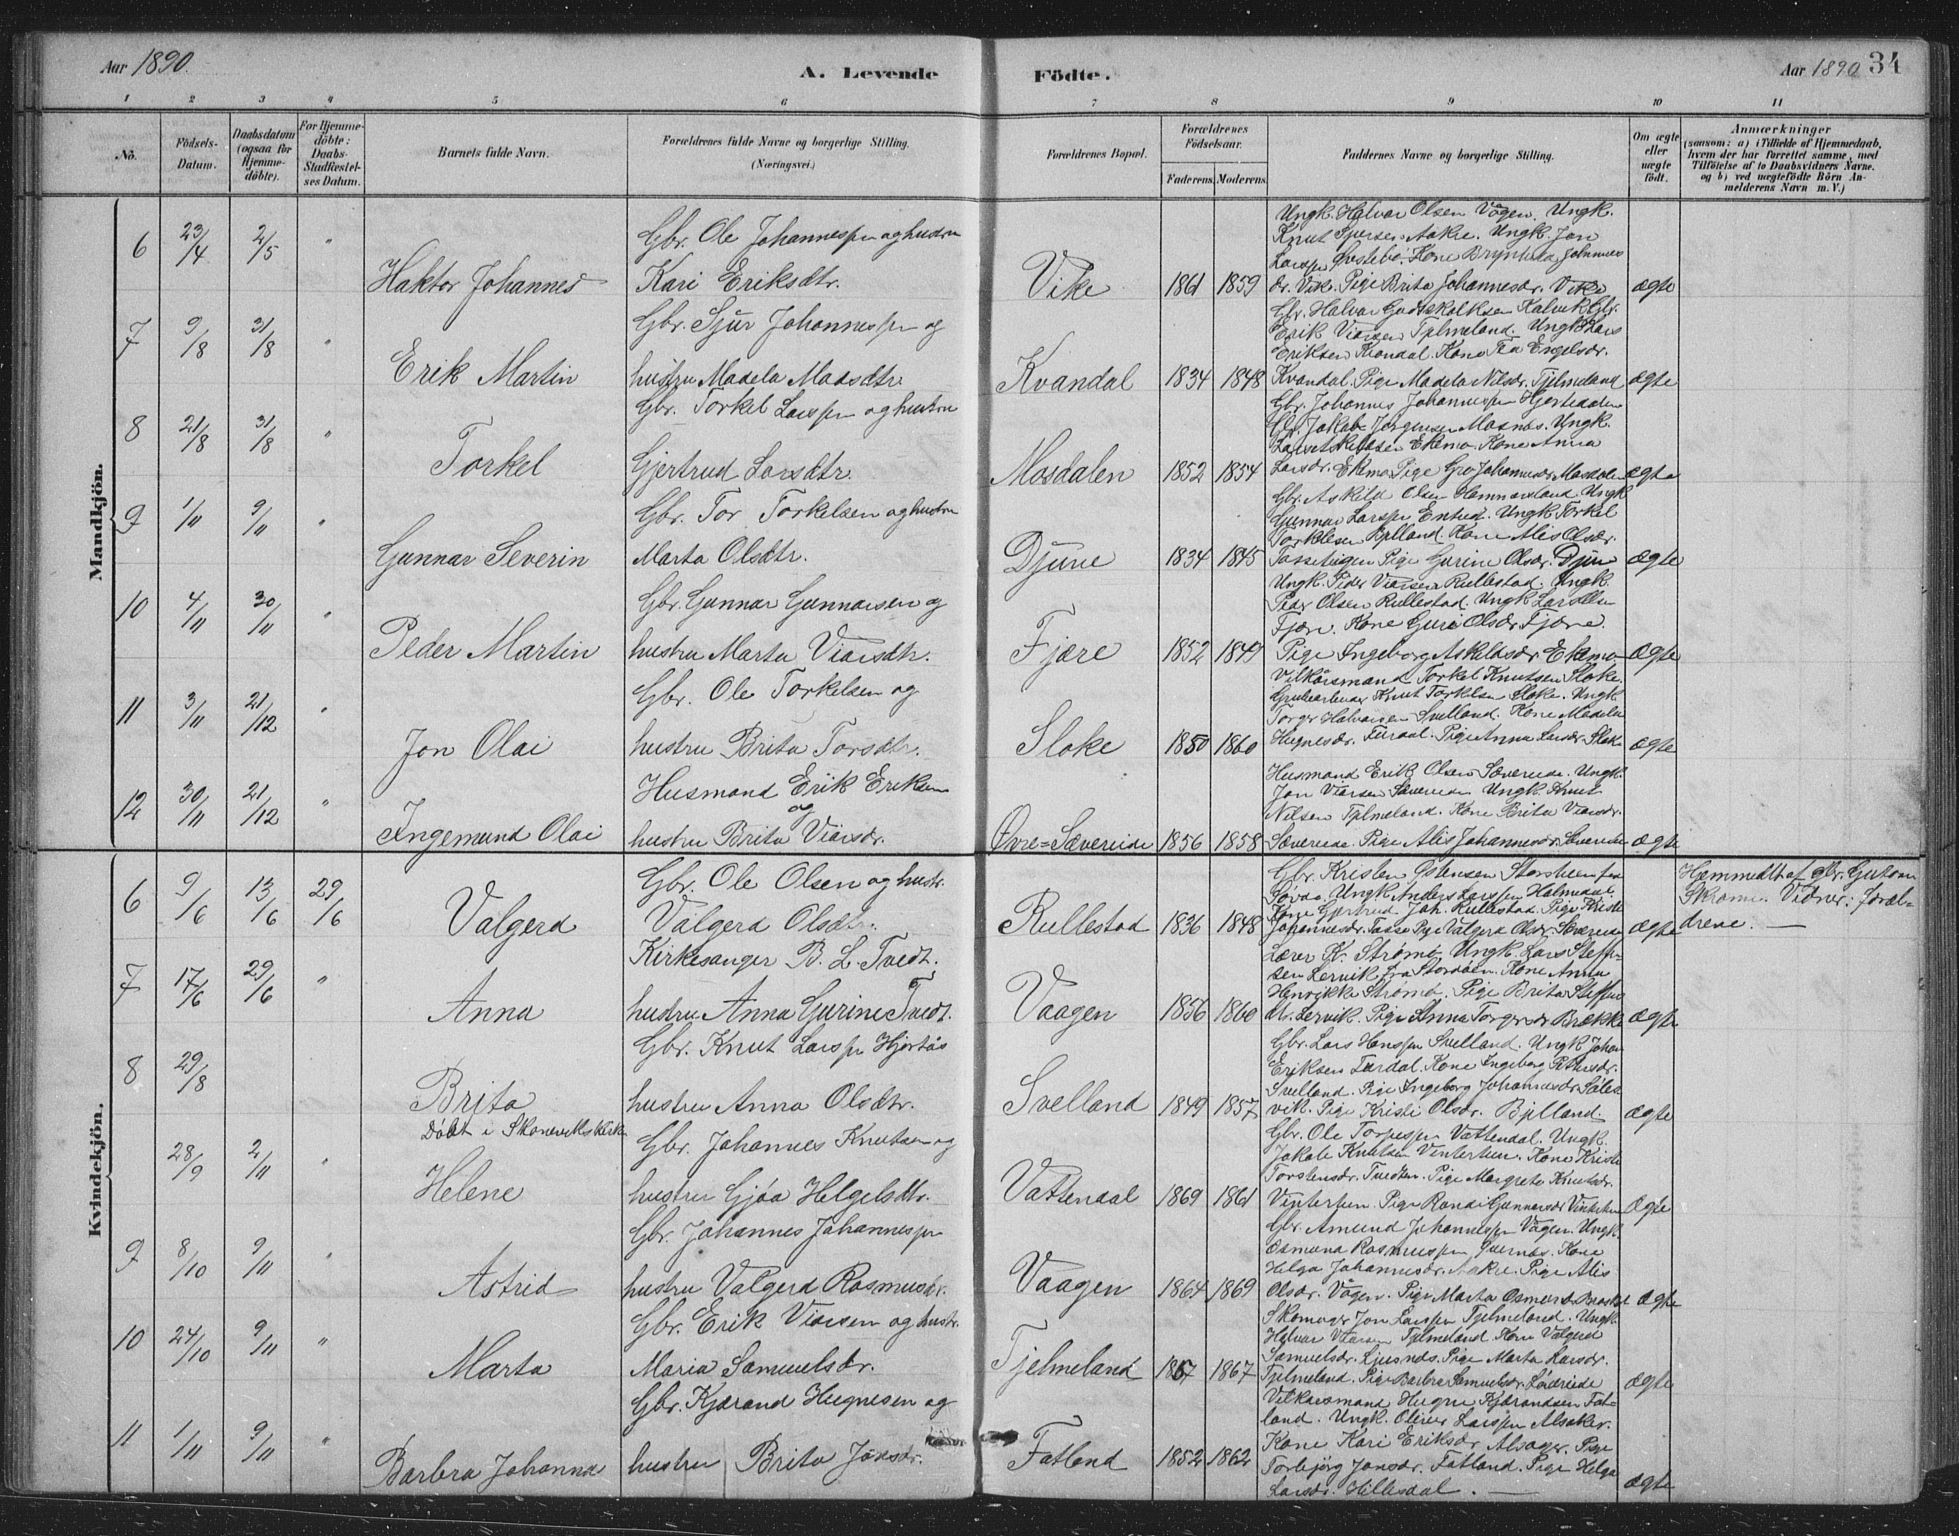 Aar 1890. A. Levende Födte. Aar 1890 34
1 2 3 4 5 6 7 8 9 10 11
No. Födsels-Datum. Daabsdatum (ogsaa for Hjemme-döbte). For Hjemme-döbte: Daabs-Stadfæstel-ses Datum. Barnets fulde Navn. Forældrenes fulde Navne og borgerlige Stilling. (Næringsvei.) Forældrenes Bopæl. Forældrenes Födselsaar. Faderens. Moderens. Faddernes Navne og borgerlige Stilling. Om ægte eller uægte födt. Anmærkninger (saasom: a) i Tilfælde af Hjemmedaab, hvem der har forrettet samme, med Tilföielse af to Daabsvidners Navne. og b) ved uægtefödte Börn An-melderens Navn m. V.)
Mandkjön.
6 23/4 2/5 " Haktor Johannes
Gbr. Ole Johannessen og hustru
Kari Eriksdtr.
Vike 1861 1859
Ungk. Halvor Olsen Vågen. Ungk.
Knut Sjursen Aakre. Ungk. Jon
Larssen Kone Brynhilda Johannes
dr. Vike. Pige Brita Johannesdr. Vike
ægte
7 9/8 31/8 " Erik Martin
Gbr. Sjur Johannessen og
hustru Madela Madsdtr.
Kvandal 1834 1848
Gbr. Halvor Gudskolksen Kalvik Gbr.
Erik Viarsen Tjelmeland. Ungk Lars
Eriksen Kvandal. Kone Engelsdr.
Kvandal. Pige Madela Nilsdr. Tjelmeland
ægte
8 21/8 31/8 " Torkel
Gbr. Torkel Larssen og hustru
Gjertrud Larsdtr.
Mosdalen 1852 1854
Gbr. Johannes Johannessen
Gbr. Jakob Jørgensen Mosnes. Ungk.
Ekemo. Kone Anna
Larsdr. Ekemo Pige Gro Johannesdr Mosdalen
ægte
9 1/11 9/11 " Gunnar Severin
Gbr. Tor Torkelsen og hustru
Marta Olsdtr.
Djune 1834 1845
Gbr. Askild Olsen Ungk
Gunnar Larssen Ungk Torkel
Torkelsen Kone Alis Olsdr.
Pige Gurine Olsdr. Djun
ægte
10 4/11 30/11 " Peder Martin
Gbr. Gunnar Gunnarsen og
hustru Marta Viarsdtr.
Fjære 1852 1849
Ungk. Peder Viarsen Rullestad. Ungk.
Peder Olsen Rullestad. Ungk Lars Olsen
Fjære. Kone Guri Olsdr Fjære.
Pige Ingeborg Askildsdr Ekemo
ægte
11 3/11 21/12 " Jon Olai
Gbr. Ole Torkelsen og
hustru Brita Torsdtr.
Sloke 1850 1860
Vilkårsmand Torkel Knutsen Sloke.
Knut Torkelsen Sloke. Ungk.
Torgr Halvorsen Svelland. Kone Madela
Hugnesdr. Pige Anna Larsdr. Slok
ægte
12 30/11 21/12 " Ingemund Olai
Husmand Erik Eriksen
og
hustru Brita Viarsdr.
Øvre=Sævereide 1856 1858
Husmand Erik Olsen Sævereide. Ungk.
Jon Viarsen Sævereide Ungk
Nilsen Tjelmeland. Kone Brita Viarsdr.
Sævereide. Pige Alis Johannesdr Sævereide
ægte
Kvindekjön.
6 9/6 13/6 29/6 Valgerd
Gbr. Ole Olsen og hustr.
Valgerd Olsdtr.
Rullestad 1836 1848
Gbr. Kristen Storsteen fra
Ungk Anders Larssen
Kone Gjertrud Joh. Rullestad. Pige Kristi
Johannesdr. Pige Valgerd Olsdr Sævereide
ægte
Hæmmedøbt af Gbr. Gutorm
Vidner: foræl-
drene. —
7 17/6 29/6 " Anna
Kirkesanger B. L. Tvedt,
hustru Anna Gurine Tvedt.
Vaagen 1856 1860
Lærer K. Strømø Ungk Lars Steff-
sen Lervik fra Stordøen. Kone Anna
Henrikke Strømø. Pige Brita Steffens
dtr. Lervik. Pige Anna Torgersdr Brekke
ægte
8 29/8 Brita
Døbt i Skonevikskirke
Gbr. Knut Larssen Hjortås
hustru Anna Olsdtr.
Svelland 1849 1857
Gbr. Lars Hanssen Svelland. Ungk Johan
Eriksen Kone Ingeborg
Svelland. Pige Ingeborg Johannesdr Søle-
vik. Pige Kristi Olsdr. Bjelland.
ægte
28/9 2/11 " Helene
Gbr. Johannes Knutsen og
hustru Gjøa Helgesdtr.
Vattendal 1869 1861
Gbr. Ole Vattendal. Ungk.
Jakob Knutsen Vintertun. Kone Kristi
Torstensdr. Tvedten. Pige Margrete Knutsdr.
Vintertun. Pige Randi Gunnarsdr Vintertun
ægte
9 8/10 9/11 " Astrid
Gbr. Johannes Johannessen
hustru Valgerd Rasmusdr.
Vaagen 1864 1869
Gbr. Amund Johannessen Vågen. Ungk.
Osmund Rasmussen Kone
Helga Johannesdr. Aakre. Pige Alis
Olsdr. Vågen. Pige Marta
ægte
10 24/10 9/11 " Marta
Gbr. Erik Viarsen og hustr.
Maria Samuelsdr.
Tjelmeland 1867 1867
Skomager Jon Larssen Tjelmeland. Ungk
Halvar Viarsen Tjelmeland Kone Valgerd
Samuelsdr. Ljusnes. Pige Marta Larsdr.
Tjelmeland. Pige Barbra Samuelsdr.
ægte
11 1/11 9/11 " Barbra Johanna
Gbr. Kjærand Hugnesen og
hustru Brita Jonsdr.
Fatland 1852 1862
Vilkårsmand Hugne Kjærandsen Fat-
land. Ungk. Oliver Larssen Alsaker.
Kone Kari Eriksdr Alsager. Pige
Torbjörg Jonsdr. Fatland. Pige Helga
Larsdr. Hillesdal. —
ægte